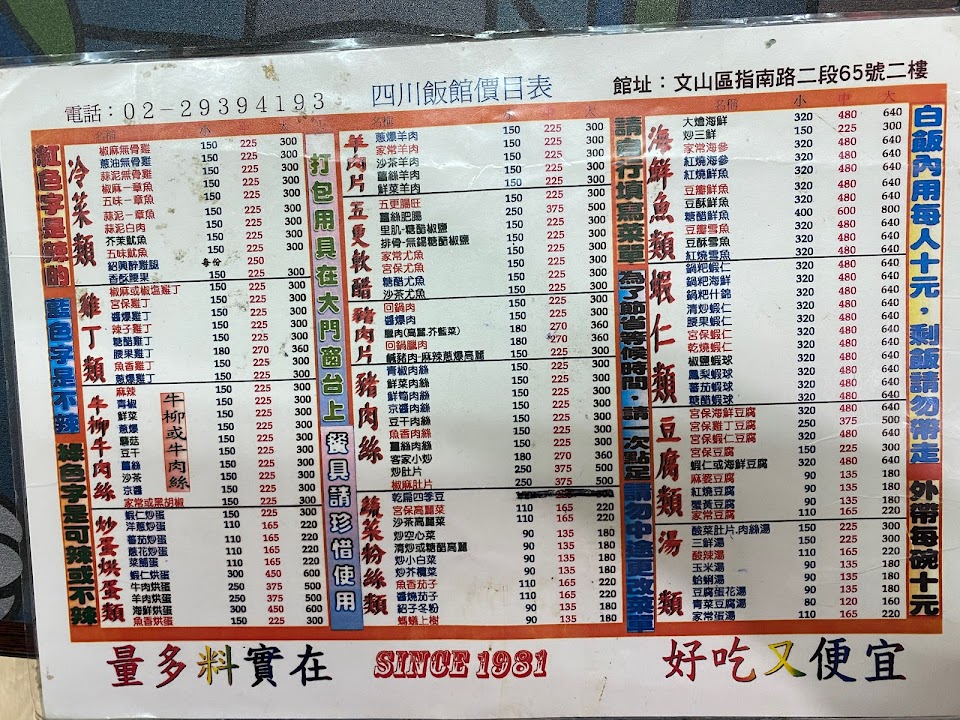 電話：02-29394193
四川飯館價目表
館址：文山區指南路二段65號二樓
紅色字是辣的 藍色字是不辣 綠色字是可辣或不辣
名稱 小 中 大
冷菜類
椒麻無骨雞 150 225 300
蔥油無骨雞 150 225 300
蒜泥無骨雞 150 225 300
椒麻—章魚 150 225 300
五味—章魚 150 225 300
蒜泥—章魚 150 225 300
蒜泥白肉 150 225 300
芥茉魷魚 150 225 300
五味魷魚 150 225 300
紹興醉雞腿 每份 250
香酥腰果 150 225 300
雞丁類
椒麻或椒塩雞丁 150 225 300
宮保雞丁 150 225 300
醬爆雞丁 150 225 300
辣子雞丁 150 225 300
糖醋雞丁 150 225 300
腰果雞丁 180 270 360
魚香雞丁 150 225 300
蔥爆雞丁 150 225 300
牛柳牛肉絲
牛柳或牛肉絲
麻辣 150 225 300
青椒 150 225 300
鮮菜 150 225 300
蔥爆 150 225 300
蘑菇 150 225 300
豆干 150 225 300
薑絲 150 225 300
沙茶 150 225 300
京醬 150 225 300
家常或黑胡椒 150 225 300
炒蛋烘蛋類
蝦仁炒蛋 150 225 300
洋蔥炒蛋 110 165 220
蕃茄炒蛋 110 165 220
蔥花炒蛋 110 165 220
菜脯蛋 110 165 220
蝦仁烘蛋 300 450 600
牛肉烘蛋 250 375 500
羊肉烘蛋 250 375 500
海鮮烘蛋 300 450 600
魚香烘蛋 150 225 300
打包用具在大門窗台上
餐具請珍惜使用
名稱 小 中 大
羊肉片
蔥爆羊肉 150 225 300
家常羊肉 150 225 300
沙茶羊肉 150 225 300
薑絲羊肉 150 225 300
鮮菜羊肉 150 225 300
五更軟醋
五更腸旺 150 225 300
薑絲肥腸 250 375 500
里肌-糖醋椒鹽 150 225 300
排骨-無錫糖醋椒鹽 150 225 300
家常尤魚 150 225 300
宮保尤魚 150 225 300
糖醋尤魚 150 225 300
沙茶尤魚 150 225 300
豬肉片
回鍋肉 150 225 300
醬爆肉 150 225 300
臘肉(高麗,芥藍菜) 180 270 360
回鍋臘肉 180 270 360
鹹豬肉-麻辣蔥爆高麗 150 225 300
豬肉絲
青椒肉絲 150 225 300
鮮菜肉絲 150 225 300
鮮筍肉絲 150 225 300
京醬肉絲 150 225 300
豆干肉絲 150 225 300
魚香肉絲 150 225 300
薑絲肉絲 150 225 300
客家小炒 180 270 360
炒肚片 250 375 500
椒麻肚片 250 375 500
蔬菜粉絲類
乾扁四季豆
宮保高麗菜 110 165 220
沙茶高麗菜 110 165 220
炒空心菜 90 135 180
清炒或糖醋高麗 90 135 180
炒小白菜 90 135 180
炒芥欖菜 90 135 180
魚香茄子 110 165 220
醬燒茄子 110 165 220
紹子冬粉 90 135 180
螞蟻上樹 90 135 180
請自行填寫菜單
為了節省等候時間，請一次點足
請勿中途更改菜單
名稱 小 中 大
海鮮魚類
大燴海鮮 320 480 640
炒三鮮 150 225 300
家常海參 320 480 640
紅燒海參 320 480 640
紅燒鮮魚 320 480 640
豆瓣鮮魚 320 480 640
豆酥鮮魚 320 480 640
糖醋鮮魚 400 600 800
豆瓣雪魚 320 480 640
豆酥雪魚 320 480 640
紅燒雪魚 320 480 640
蝦仁類
鍋粑蝦仁 320 480 640
鍋粑海鮮 320 480 640
鍋粑什錦 320 480 640
清炒蝦仁 320 480 640
腰果蝦仁 320 480 640
宮保蝦仁 320 480 640
乾燒蝦仁 320 480 640
椒鹽蝦球 320 480 640
鳳梨蝦球 320 480 640
蕃茄蝦球 320 480 640
糖醋蝦球 320 480 640
豆腐類
宮保海鮮豆腐 320 480 640
宮保雞丁豆腐 250 375 500
宮保蝦仁豆腐 320 480 640
宮保豆腐 150 225 300
蝦仁或海鮮豆腐 320 480 640
麻婆豆腐 90 135 180
紅燒豆腐 90 135 180
蟹黃豆腐 90 135 180
家常豆腐 110 165 220
湯類
酸菜肚片,肉絲湯 150 225 300
三鮮湯 150 225 300
酸辣湯 110 165 220
玉米湯 90 135 180
蛤蜊湯 90 135 180
豆腐蛋花湯 90 135 180
青菜豆腐湯 80 120 160
家常蛋湯 110 165 220
白飯內用每人十元，剩飯請勿帶走
外帶每碗十元
量多料實在
SINCE 1981
好吃又便宜